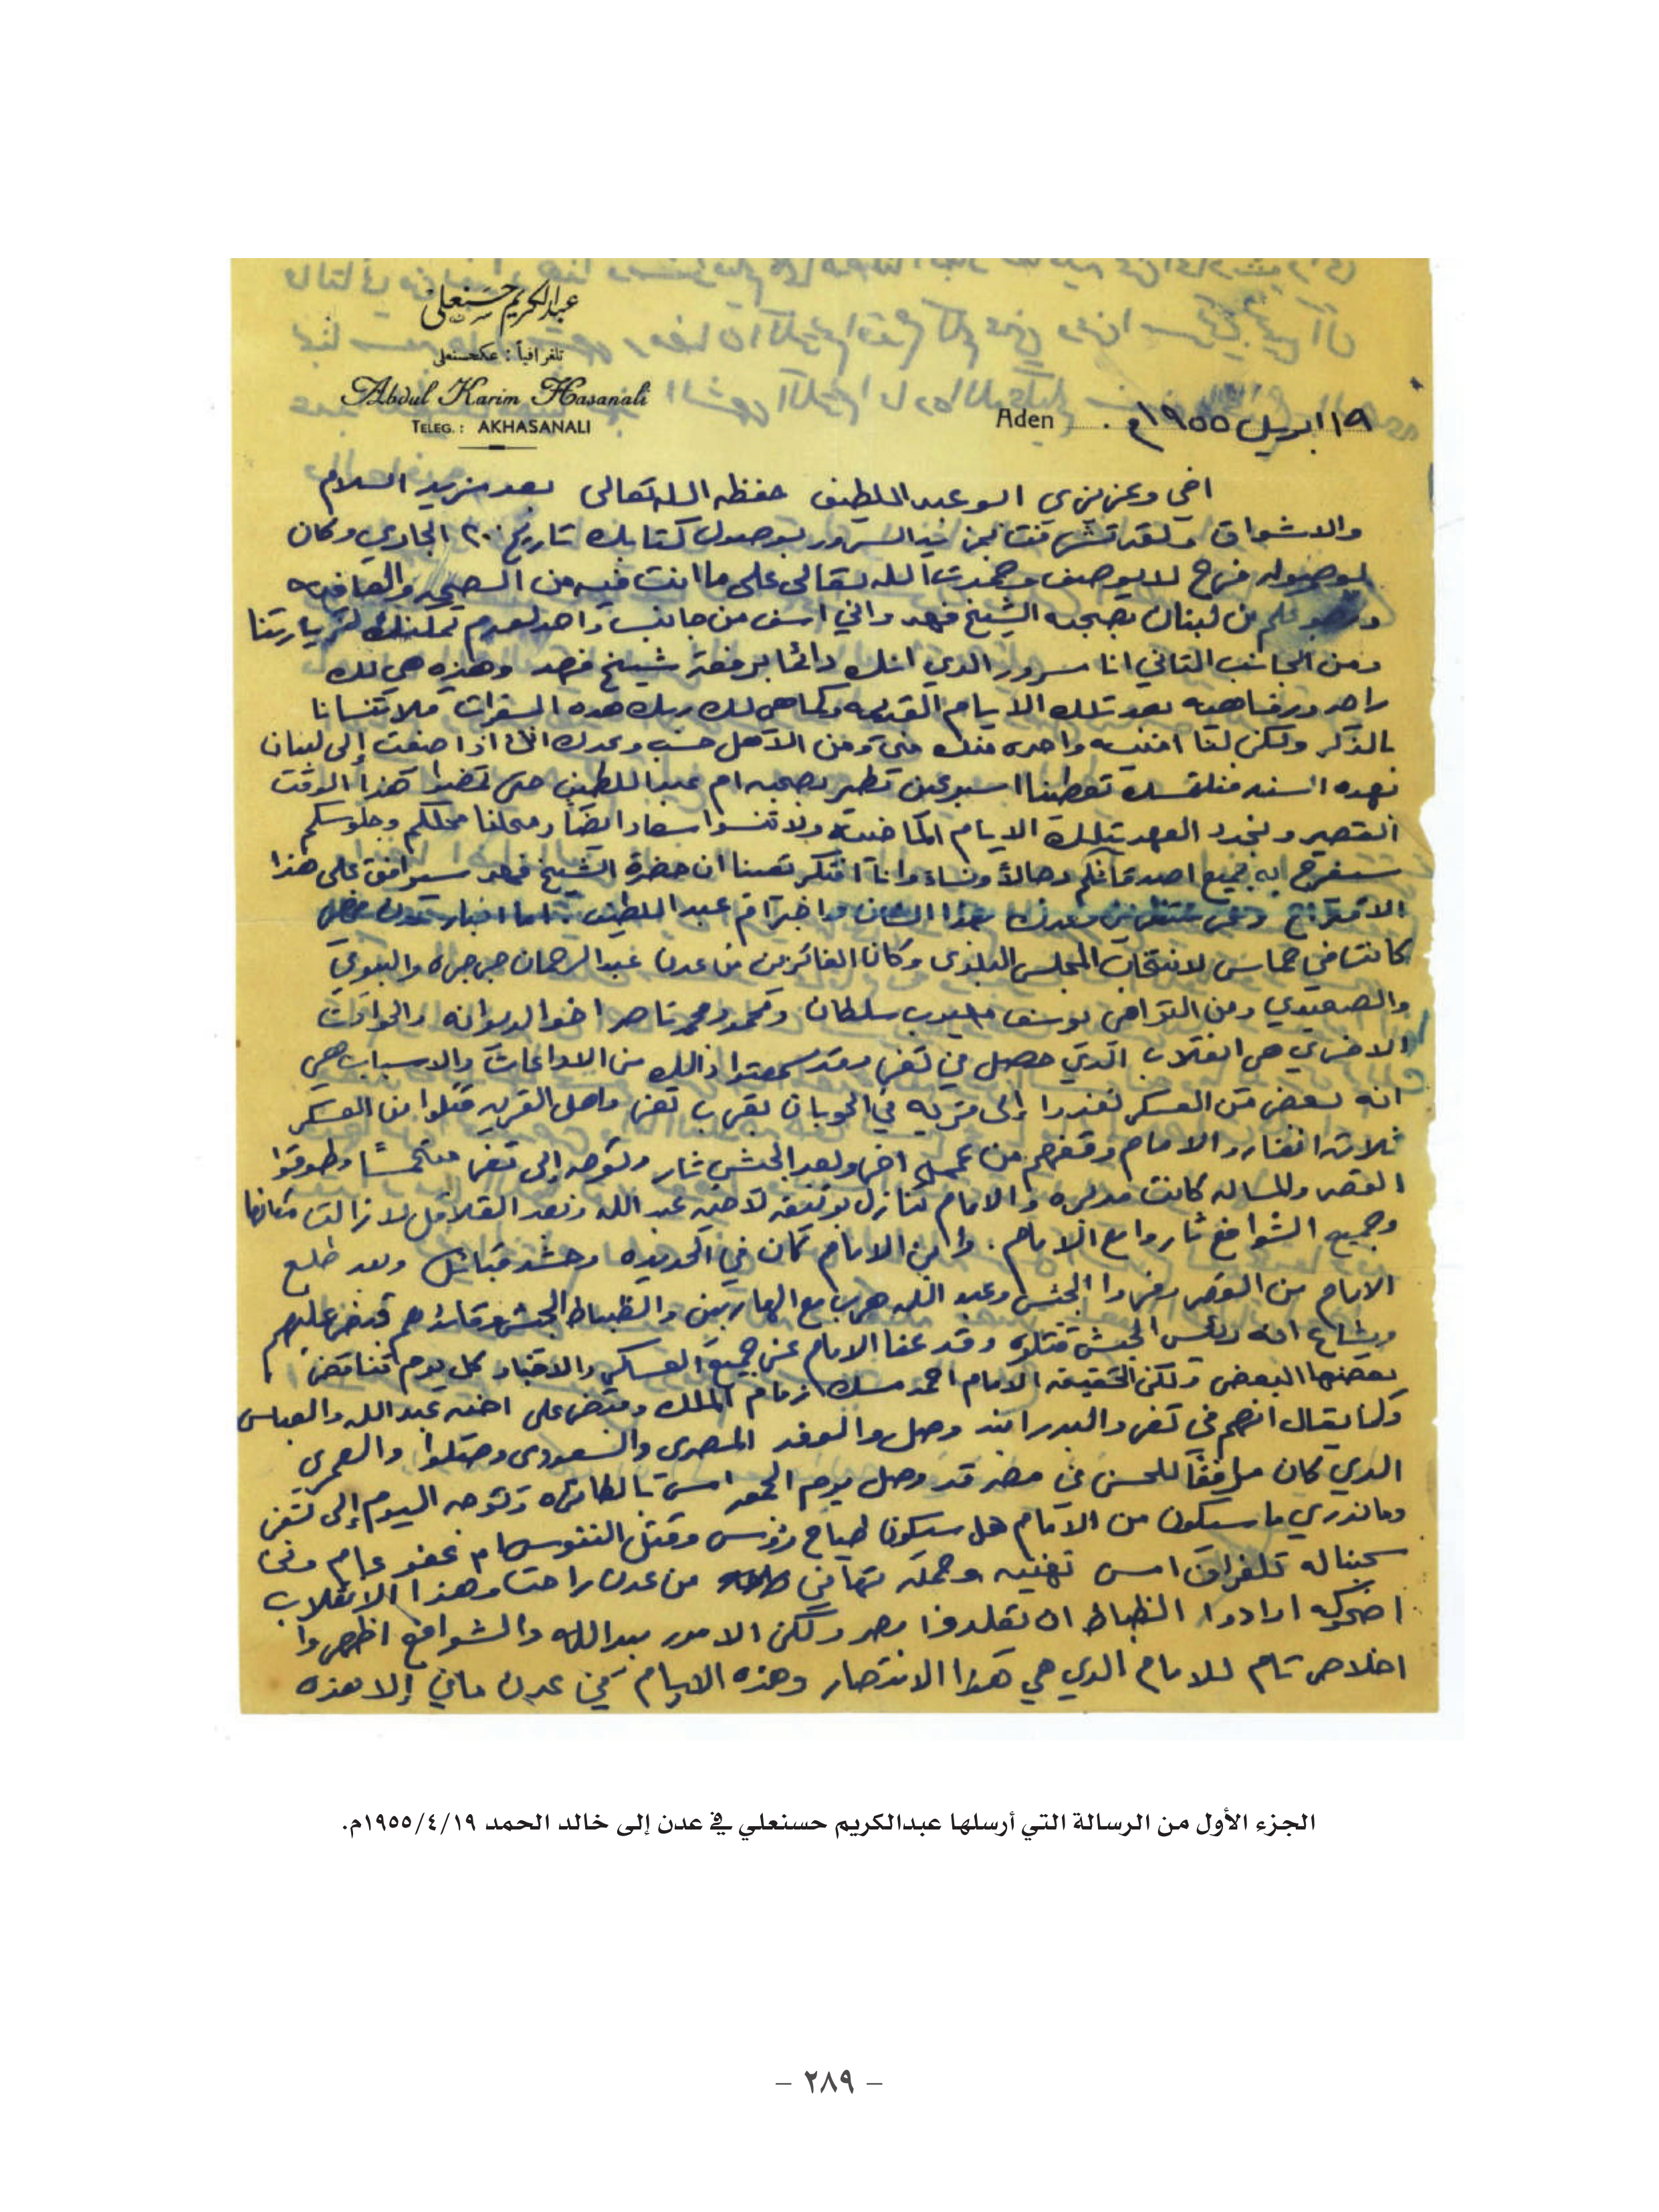 عبدالكريم حسنعلي
تلغرافياً : عكحسنعلي
Abdul Karim Hasanali
TELEG. : AKHASANALI
Aden ١٩ ابريل ١٩٥٥م
اخي وعزيزي ابو عبد اللطيف حفظه الله تعالى بعد مزيد السلام
والاشواق ولقد تشرفت بمزيد السرور بوصول كتابك تاريخ ٢٠ الجاري وكان
لوصوله فرح لا يوصف وحمدت الله تعالى على ما انت فيه من الصحه والعافيه
من لبنان بصحبه الشيخ فهد واني اسف من جانب واحد لعدم تمكنك لزيارتنا
ومن الجانب الثاني انا مسرور الدي انك دائما برفقة شيخ فهد وهذه هي لك
راحه ورفاهيه بعد تلك الايام القديمه وكما هي لك هذه السفرات فلا تنسانا
بالذكر ولكن لنا امنيه واحده منك مني ومن الاهل حسب وعدك انك اذا صفت إلى لبنان
بهذه السنه تعطينا اسبوعين تطير بصحبه ام عبد اللطيف حتى هذا الوقت
القصير ونجدد العهد بتلك الايام الماضيه ولا تنسوا سعاد ايضاً ومحلنا محلكم وجلوسكم
سيفرح به جميع اصدقائكم رجالاً ونساء وانا افتكر ان حضرة الشيخ فهد سيوافق على هذا
الاقتراح بهذا الشان واخبر ام عبد اللطيف . اما اخبار عدن
كانت في حماس لانتخاب المجلس البلدي وكانا الفائزين من عدن عبد الرحمان جرجره والبيومي
والصعيدي ومن التواهي يوسف سلطان ومحمود ومحمد ناصر اخو الديوانه والحوادث
الاخرى هي انقلاب الذي حصل في تعز وقد سمعتوا ذالك من الاذاعات والاسباب هي
انه بعض من العسكر نفذوا إلى قريه في الحوبان بقرب تعز واهل القريه قتلوا من العسكر
ثلاثه انفار والامام وقفهم من عمل اخر وبعد الجيش ثار وتوجه إلى تعز وطوقوا
القصر والمساله كانت مدبره والامام تنازل بوثيقه لاخيه عبد الله وبعد القلاقل لا زالت مكانها
وجميع الشوافع ثاروا مع الامام . وابن الامام كان في الحديده وحشد قبائل وبعد طلع
الامام من القصر وفروا الجيش وعبد الله هرب مع الهاربين والظباط الجيش وقائدهم قبض عليهم
ويشاع انه رئيس الجيش قتلوه وقد عفا الامام عن جميع العسكر والاخبار كل يوم تناقض
بعضها البعض ولكن الحقيقه الامام احمد مسك زمام الملك وقبض على اخيه عبد الله والعباس
وكما يقال انهم في تعز والبدر ابنه وصل والوفد المصري والسعودي وصلوا والعمري
الدي كان مرافقاً للحسن في مصر قد وصل يوم الجمعه امس بالطائره وتوجه اليوم إلى تعز
وما ندري ما سيكون من الامام هل سيكون طياح رؤوس وقتل النفوس ام عفو عام ونحن
سحبنا له تلغراف امس تهنيه وجملة تهاني من عدن راحت وهذا الانقلاب
اضحوكه ارادوا الظباط ان يقلدوا مصر ولكن الامور بيد الله والشوافع اظهروا
اخلاص تام للامام الدي هي هذا الانتصار وهذه الايام في عدن مافي إلا هذه
الجزء الأول من الرسالة التي أرسلها عبدالكريم حسنعلي في عدن إلى خالد الحمد ١٩٥٥/٤/١٩م.
– ٢٨٩ –